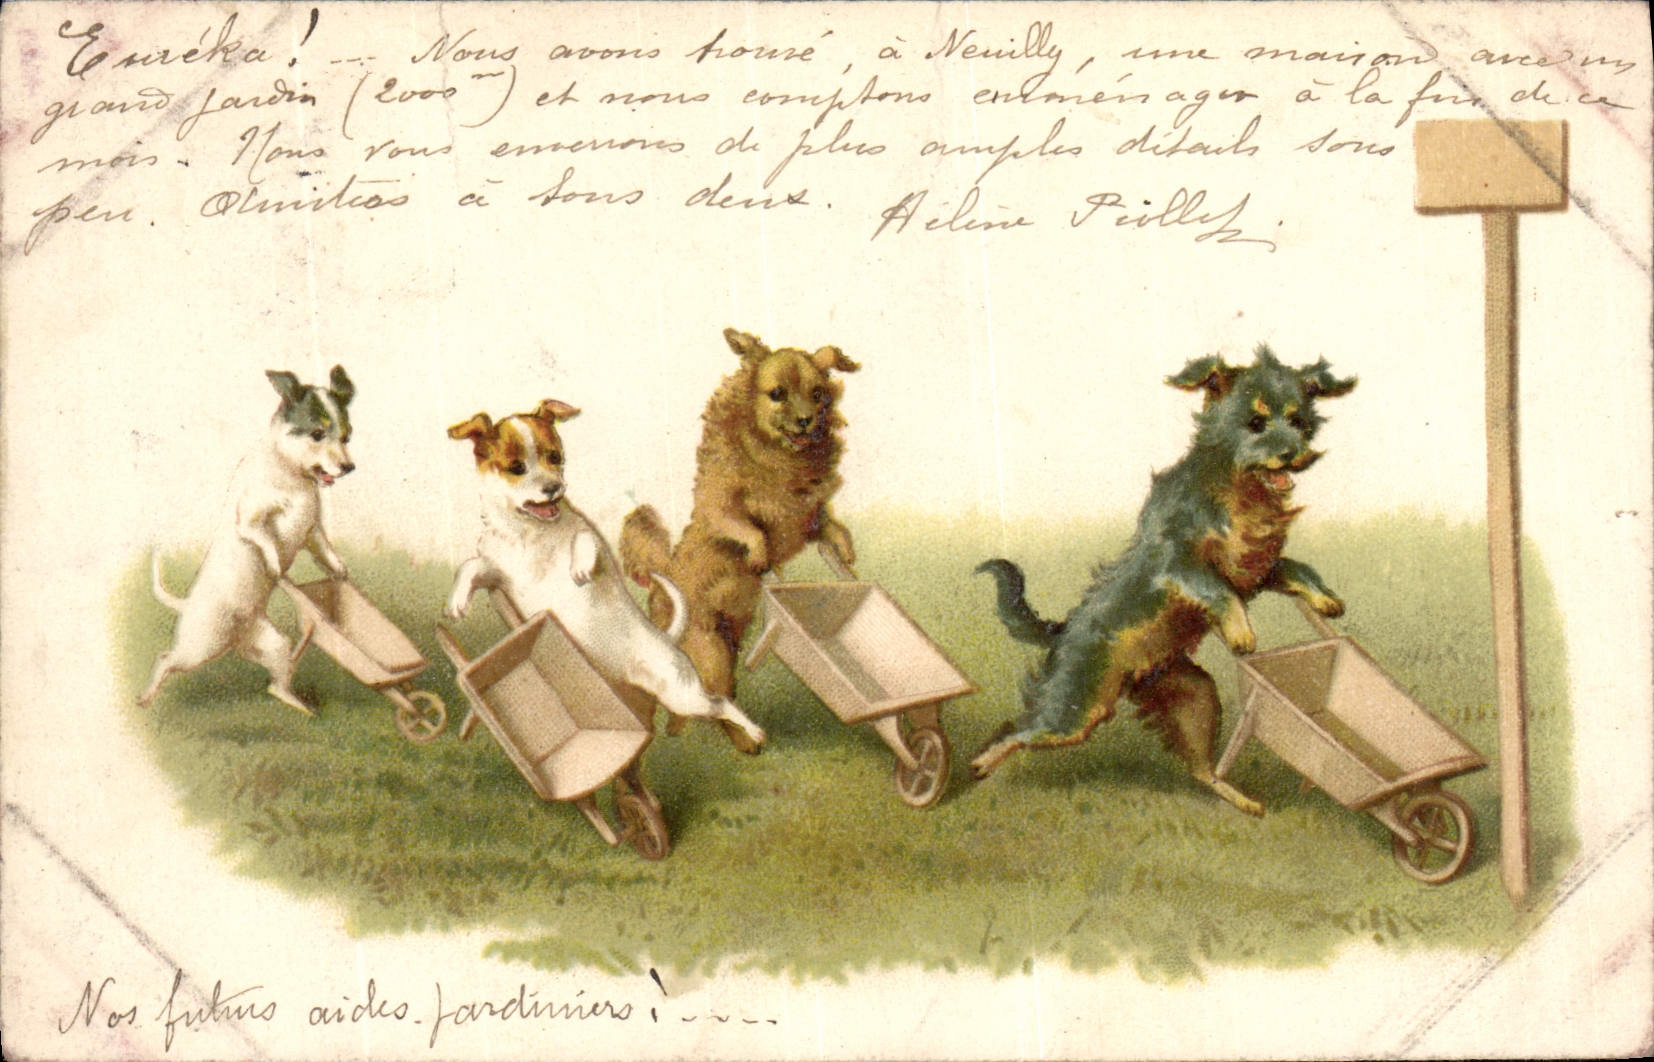 Eurêka! --- Nous avons trouvé, à Neuilly, une maison avec un
grand jardin (2000 m) et nous comptons emménager à la fin de ce
mois. Nous vous enverrons de plus amples détails sous
peu. Amitiés à tous deux. Hélène
Nos futurs aides-jardiniers! ----